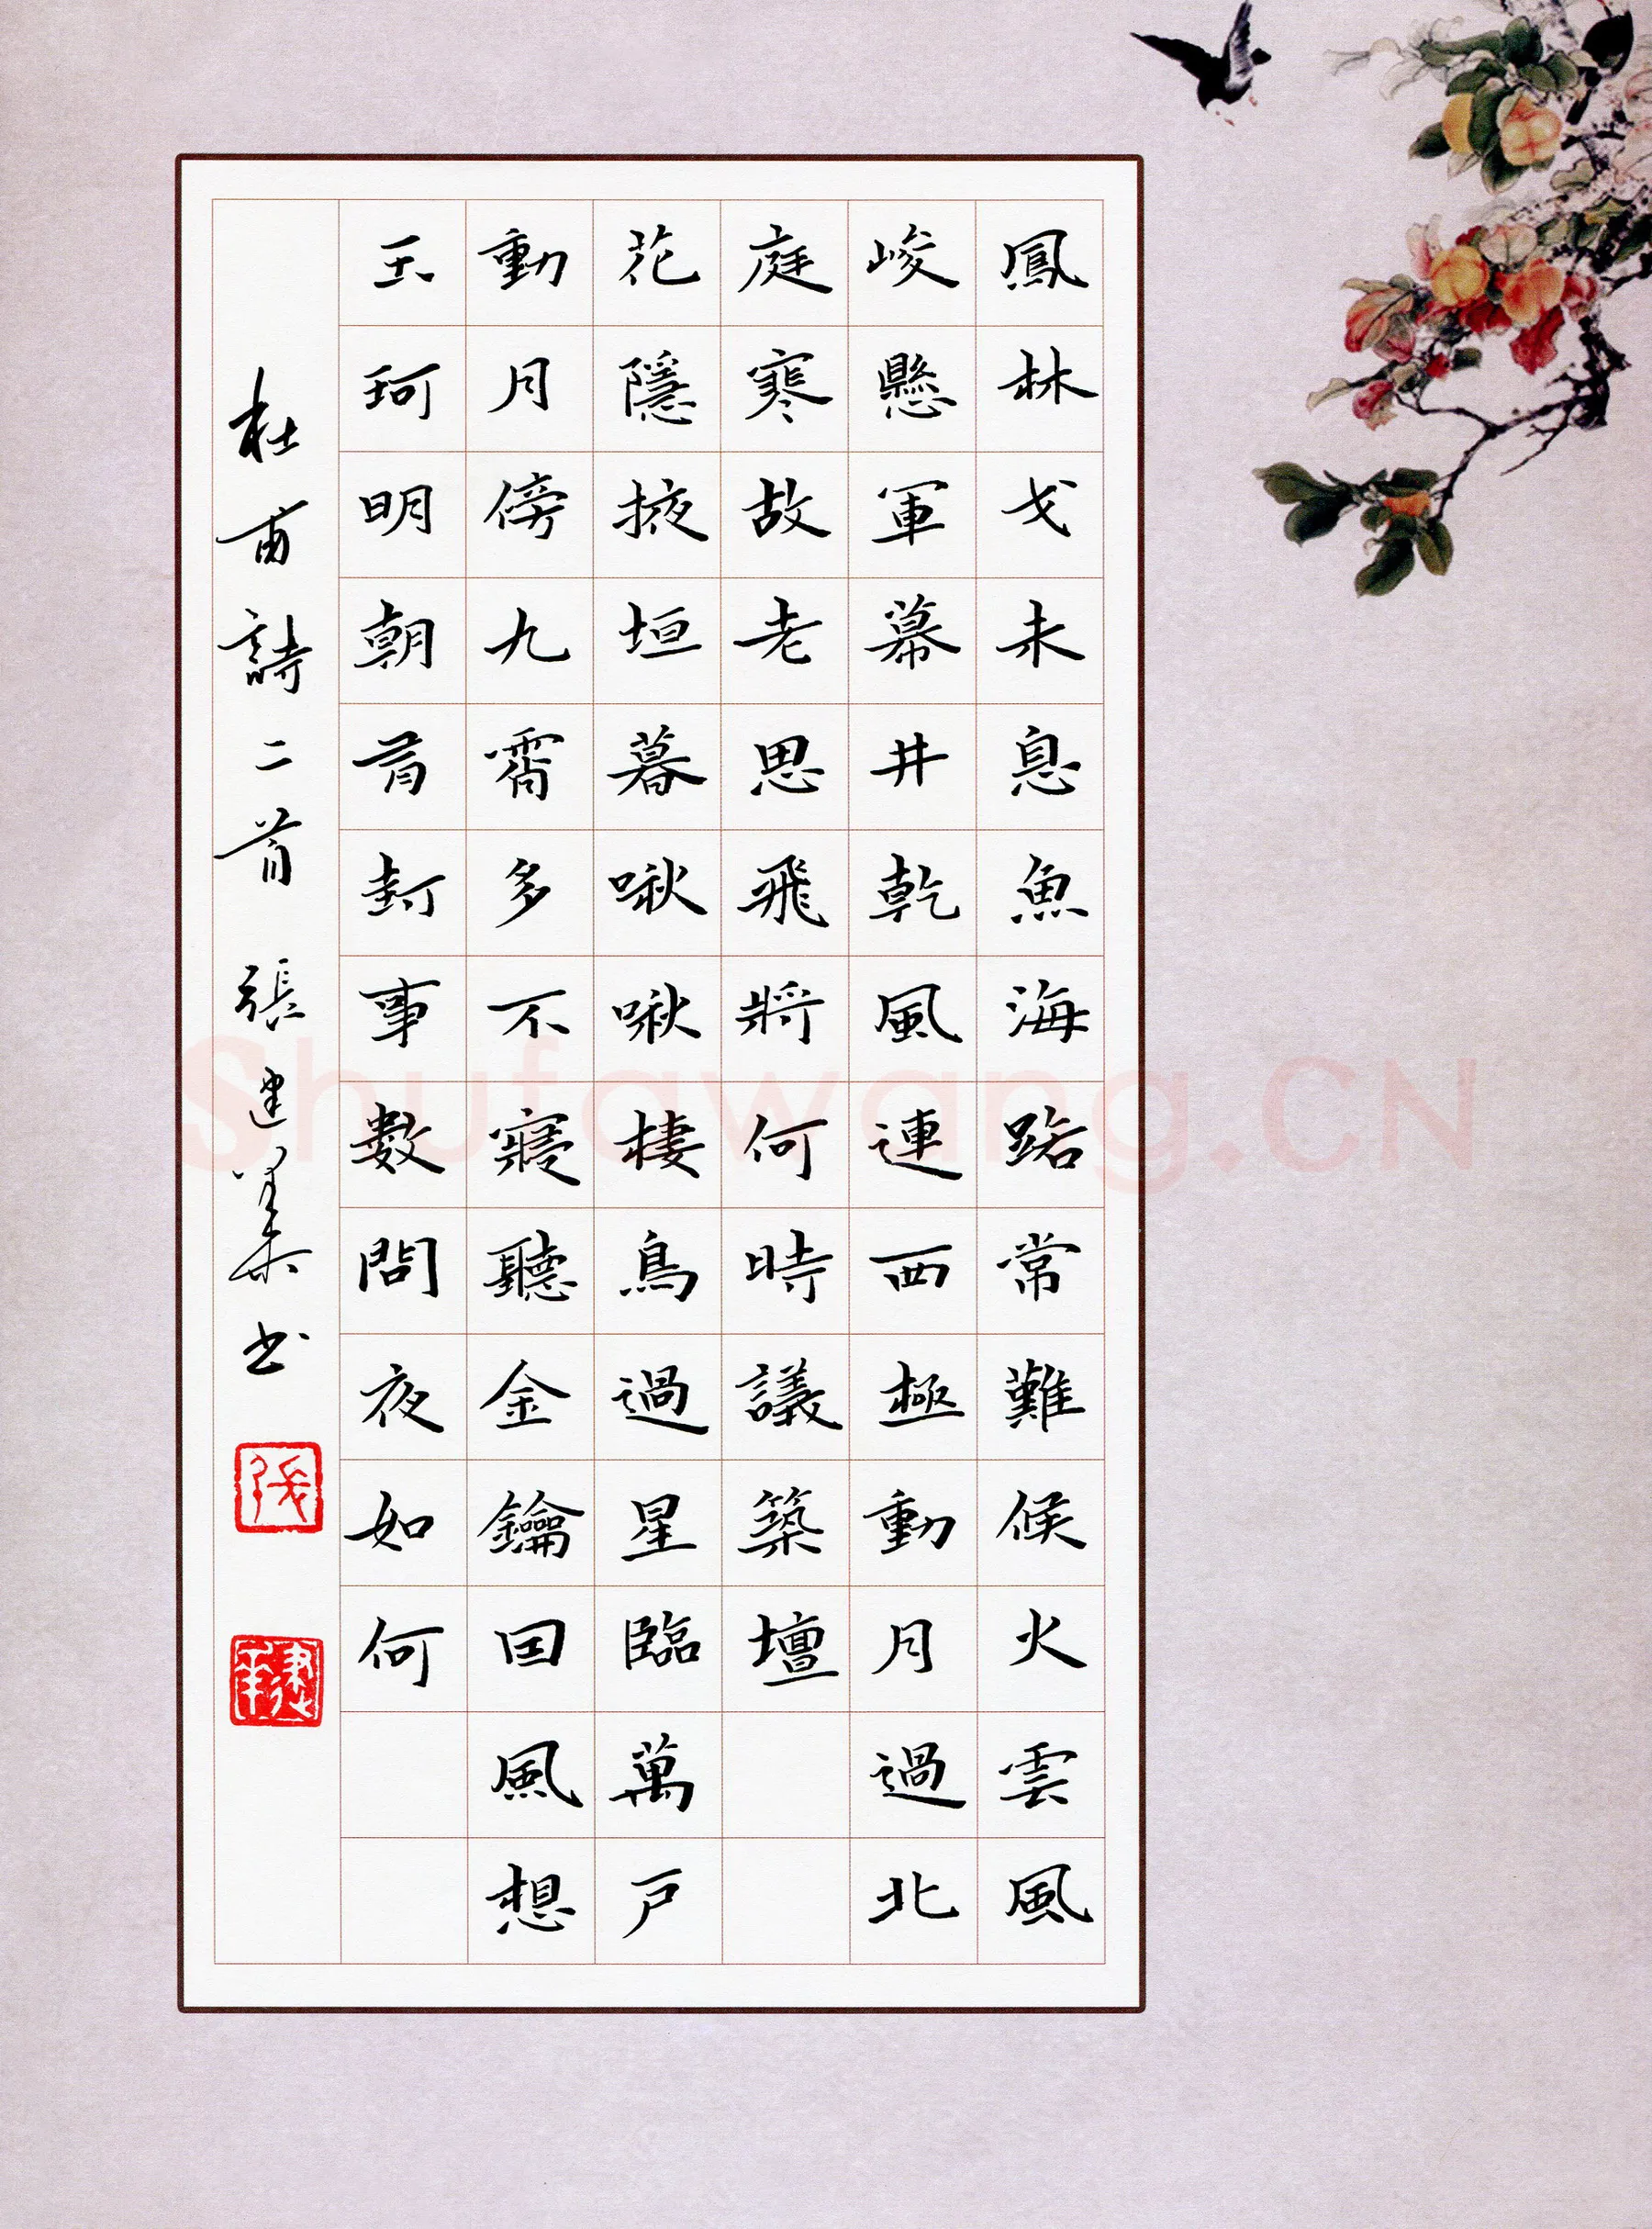 鳳林戈未息魚海路常難候火雲風
峻懸軍幕井乾風連西極動月過北
庭寒故老思飛將何時議築壇
花隱掖垣暮啾啾棲鳥過星臨萬戶
動月傍九霄多不寢聽金鑰因風想
玉珂明朝有封事數問夜如何
杜甫詩二首 張建书
Shufawang.CN